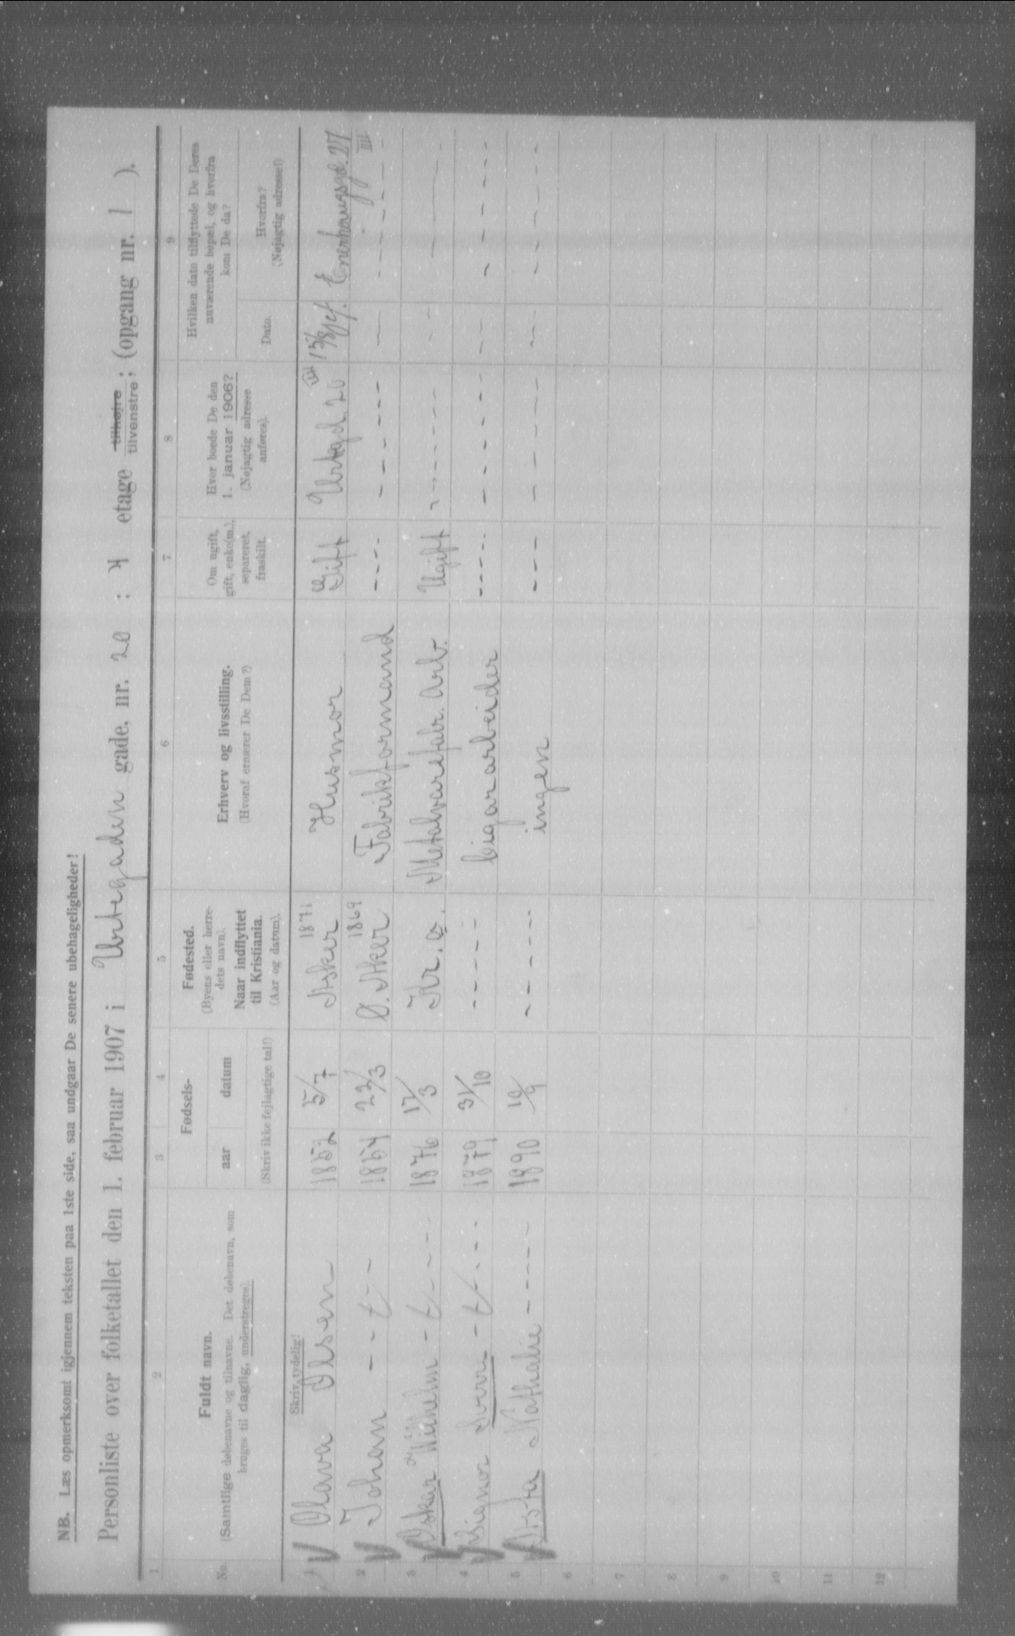 NB. Læs opmerksomt igjennem teksten paa 1ste side, saa undgaar De senere ubehageligheder!
Personliste over folketallet den 1. februar 1907 i Urtegaden gade, nr. 20 ; 4 etage tilhøjre tilvenstre; (opgang nr. 1 ).
1 2 3 4 5 6 7 8 9
No. Fuldt navn. (Samtlige døbenavne og tilnavne. Det døbenavn, som bruges til daglig, understreges).
Fødsels-
aar datum
(Skriv ikke fejlagtige tal!)
Fødested. (Byens eller herredets navn). Naar indflyttet til Kristiania. (Aar og datum).
Erhverv og livsstilling. (Hvoraf ernærer De Dem?)
Om ugift, gift, enke(m.), separeret, fraskilt.
Hvor boede De den 1. januar 1906? (Nøjagtig adresse anføres).
Hvilken dato tilflyttede De Deres nuværende bopæl, og hvorfra kom De da?
Dato. Hvorfra? (Nøjagtig adresse!)
Skriv tydelig!
1 Olava Olsen 1852 5/7 Asker 1871 Husmor Gift Urtegd. 20 Enerhaugsgd. 27 III
2 Johan - - t - - 1854 23/3 Ø. Aker 1869 Fabrikformand - - - - - - - - -
3 Oskar Wilhelm - t - - - 1876 17/3 Kr.a. Metalvarefabr. Arb. Ugift - - - - - -
4 Signor Sverre - t - - - 1879 31/10 - - - - - Cigararbeider - - - - - - - - - -
5 Nathalie - - - - 1890 - - - - - ingen - - - - - - - -
6
7
8
9
10
11
12